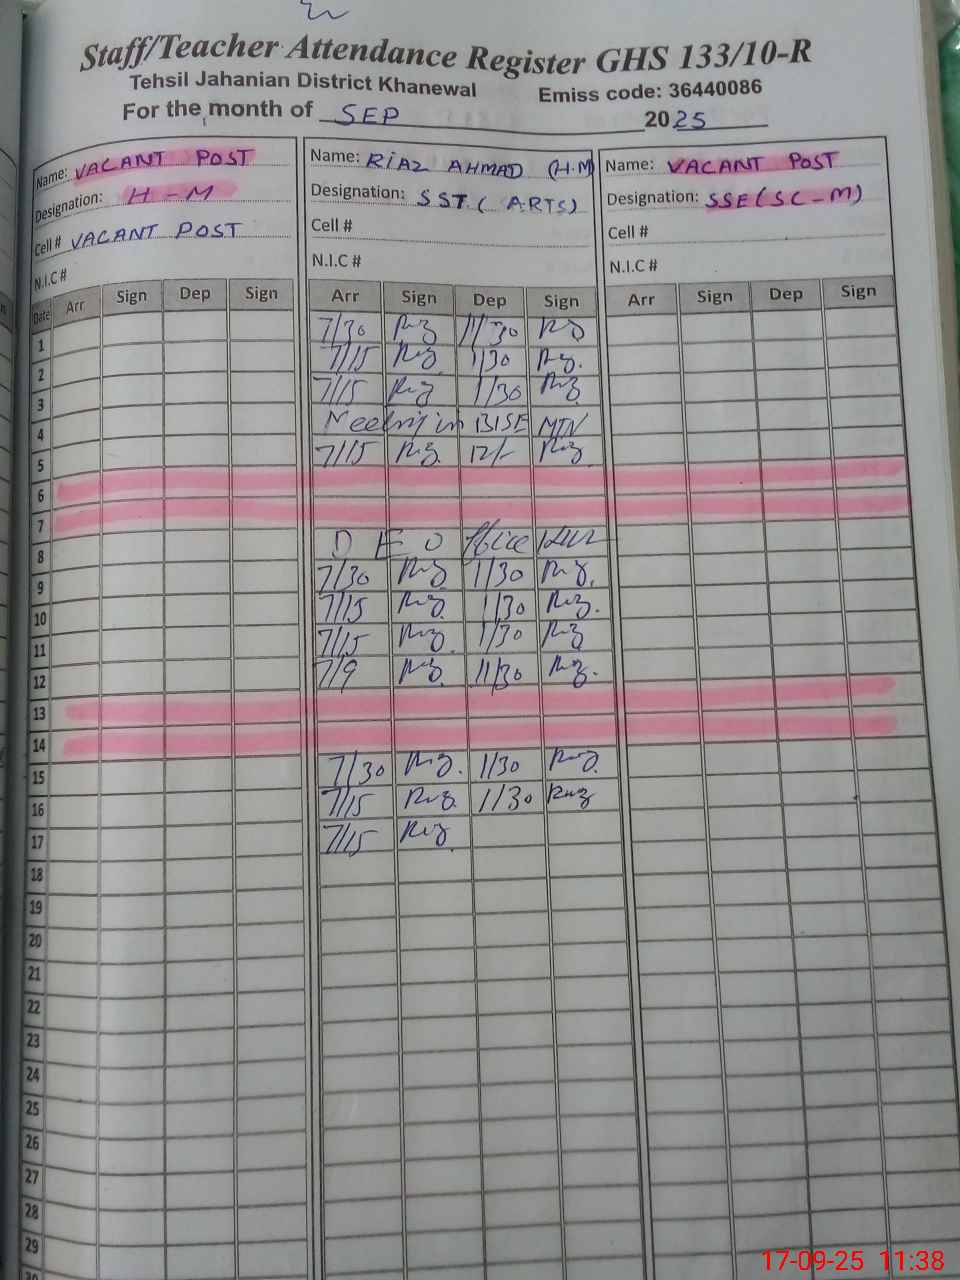 Staff/Teacher Attendance Register GHS 133/10-R
Tehsil Jahanian District Khanewal Emiss code: 36440086
For the month of SEP 2025
Name: VACANT POST Name: RIAZ AHMAD (H.M) Name: VACANT POST
Designation: H-M Designation: SST (ARTS) Designation: SSE(SC-M)
Cell # VACANT POST Cell # Cell #
N.I.C # N.I.C # N.I.C #
Date Arr Sign Dep Sign Arr Sign Dep Sign Arr Sign Dep Sign
1 7/30 11/30
2 7/15 1/30
3 7/15 1/30
4 Meeting in BISE MTN
5 7/15 12/-
6
7
8 D E O office
9 7/30 1/30
10 7/15 1/30
11 7/15 1/30
12 7/9 11/30
13
14
15 7/30 1/30
16 7/15 1/30
17 7/15
18
19
20
21
22
23
24
25
26
27
28
29
30
17-09-25 11:38